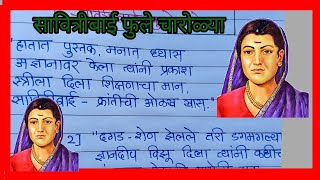 सावित्रीबाई फुले चारोळ्या
"हातात पुस्तक, मनात ध्यास
अज्ञानावर केला त्यांनी प्रकाश
स्त्रीला दिला शिक्षणाचा मान,
सावित्रीबाई - क्रांतीची ओळख खास."
2] "दगड - शेण झेलले तरी डगमगल्या
ज्ञानदीप विझू दिला त्यांनी कधीच